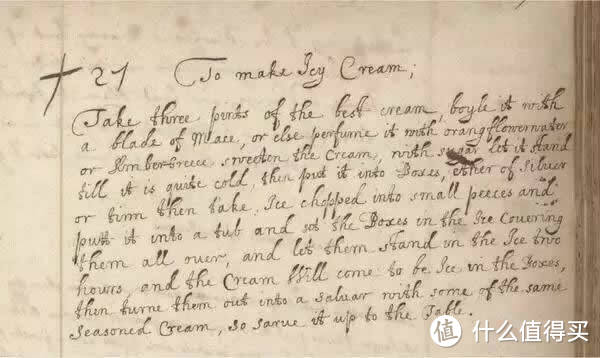 27 To make Icy Cream;
Take three pints of the best cream, boyle it with
a blade of Mace, or else perfume it with orangflowerwater
or AmberGreece sweeten the Cream, with sugar let it stand
till it is quite cold, then put it into Boxes, ether of Siluer
or tinn then take, Ice chopped into small peeces and
putt it into a tub and set the Boxes in the Ice couering
them all ouer, and let them stand in the Ice two
hours, and the Cream Will come to be Ice in the Boxes,
then turne them out into a saluar with some of the same
Seasoned Cream, so sarue it up to the Table.
值 什么值得买